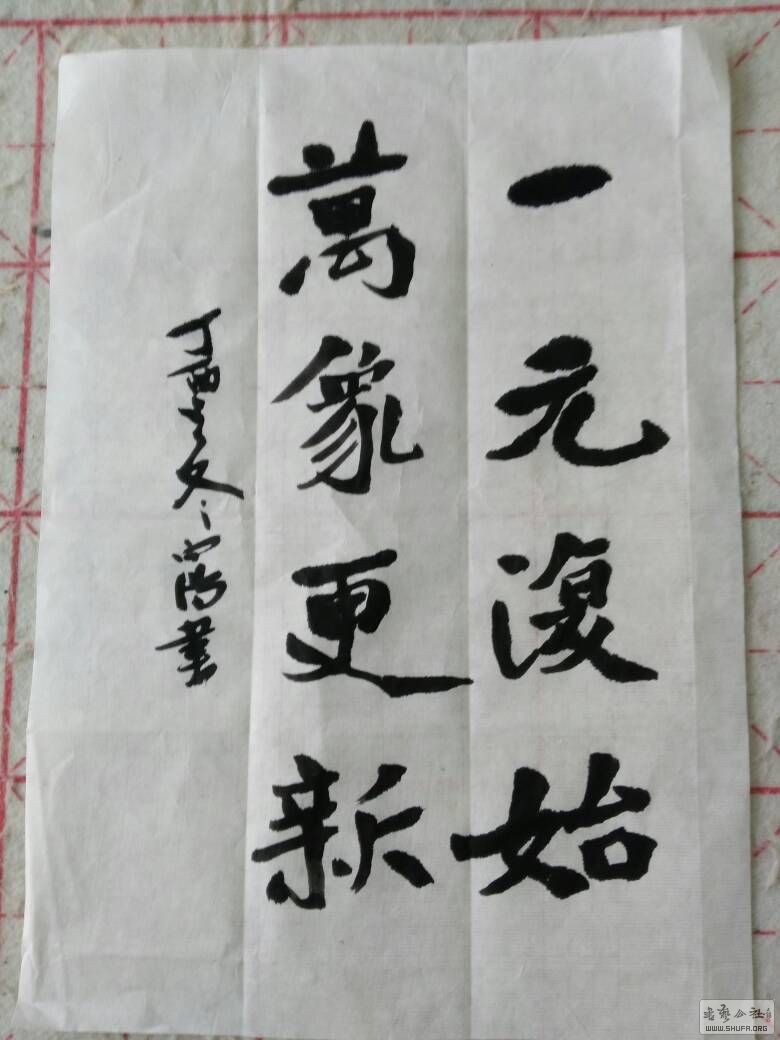 一元復始
萬象更新
丁酉之冬
书
书艺公社
WWW.SHUFA.ORG